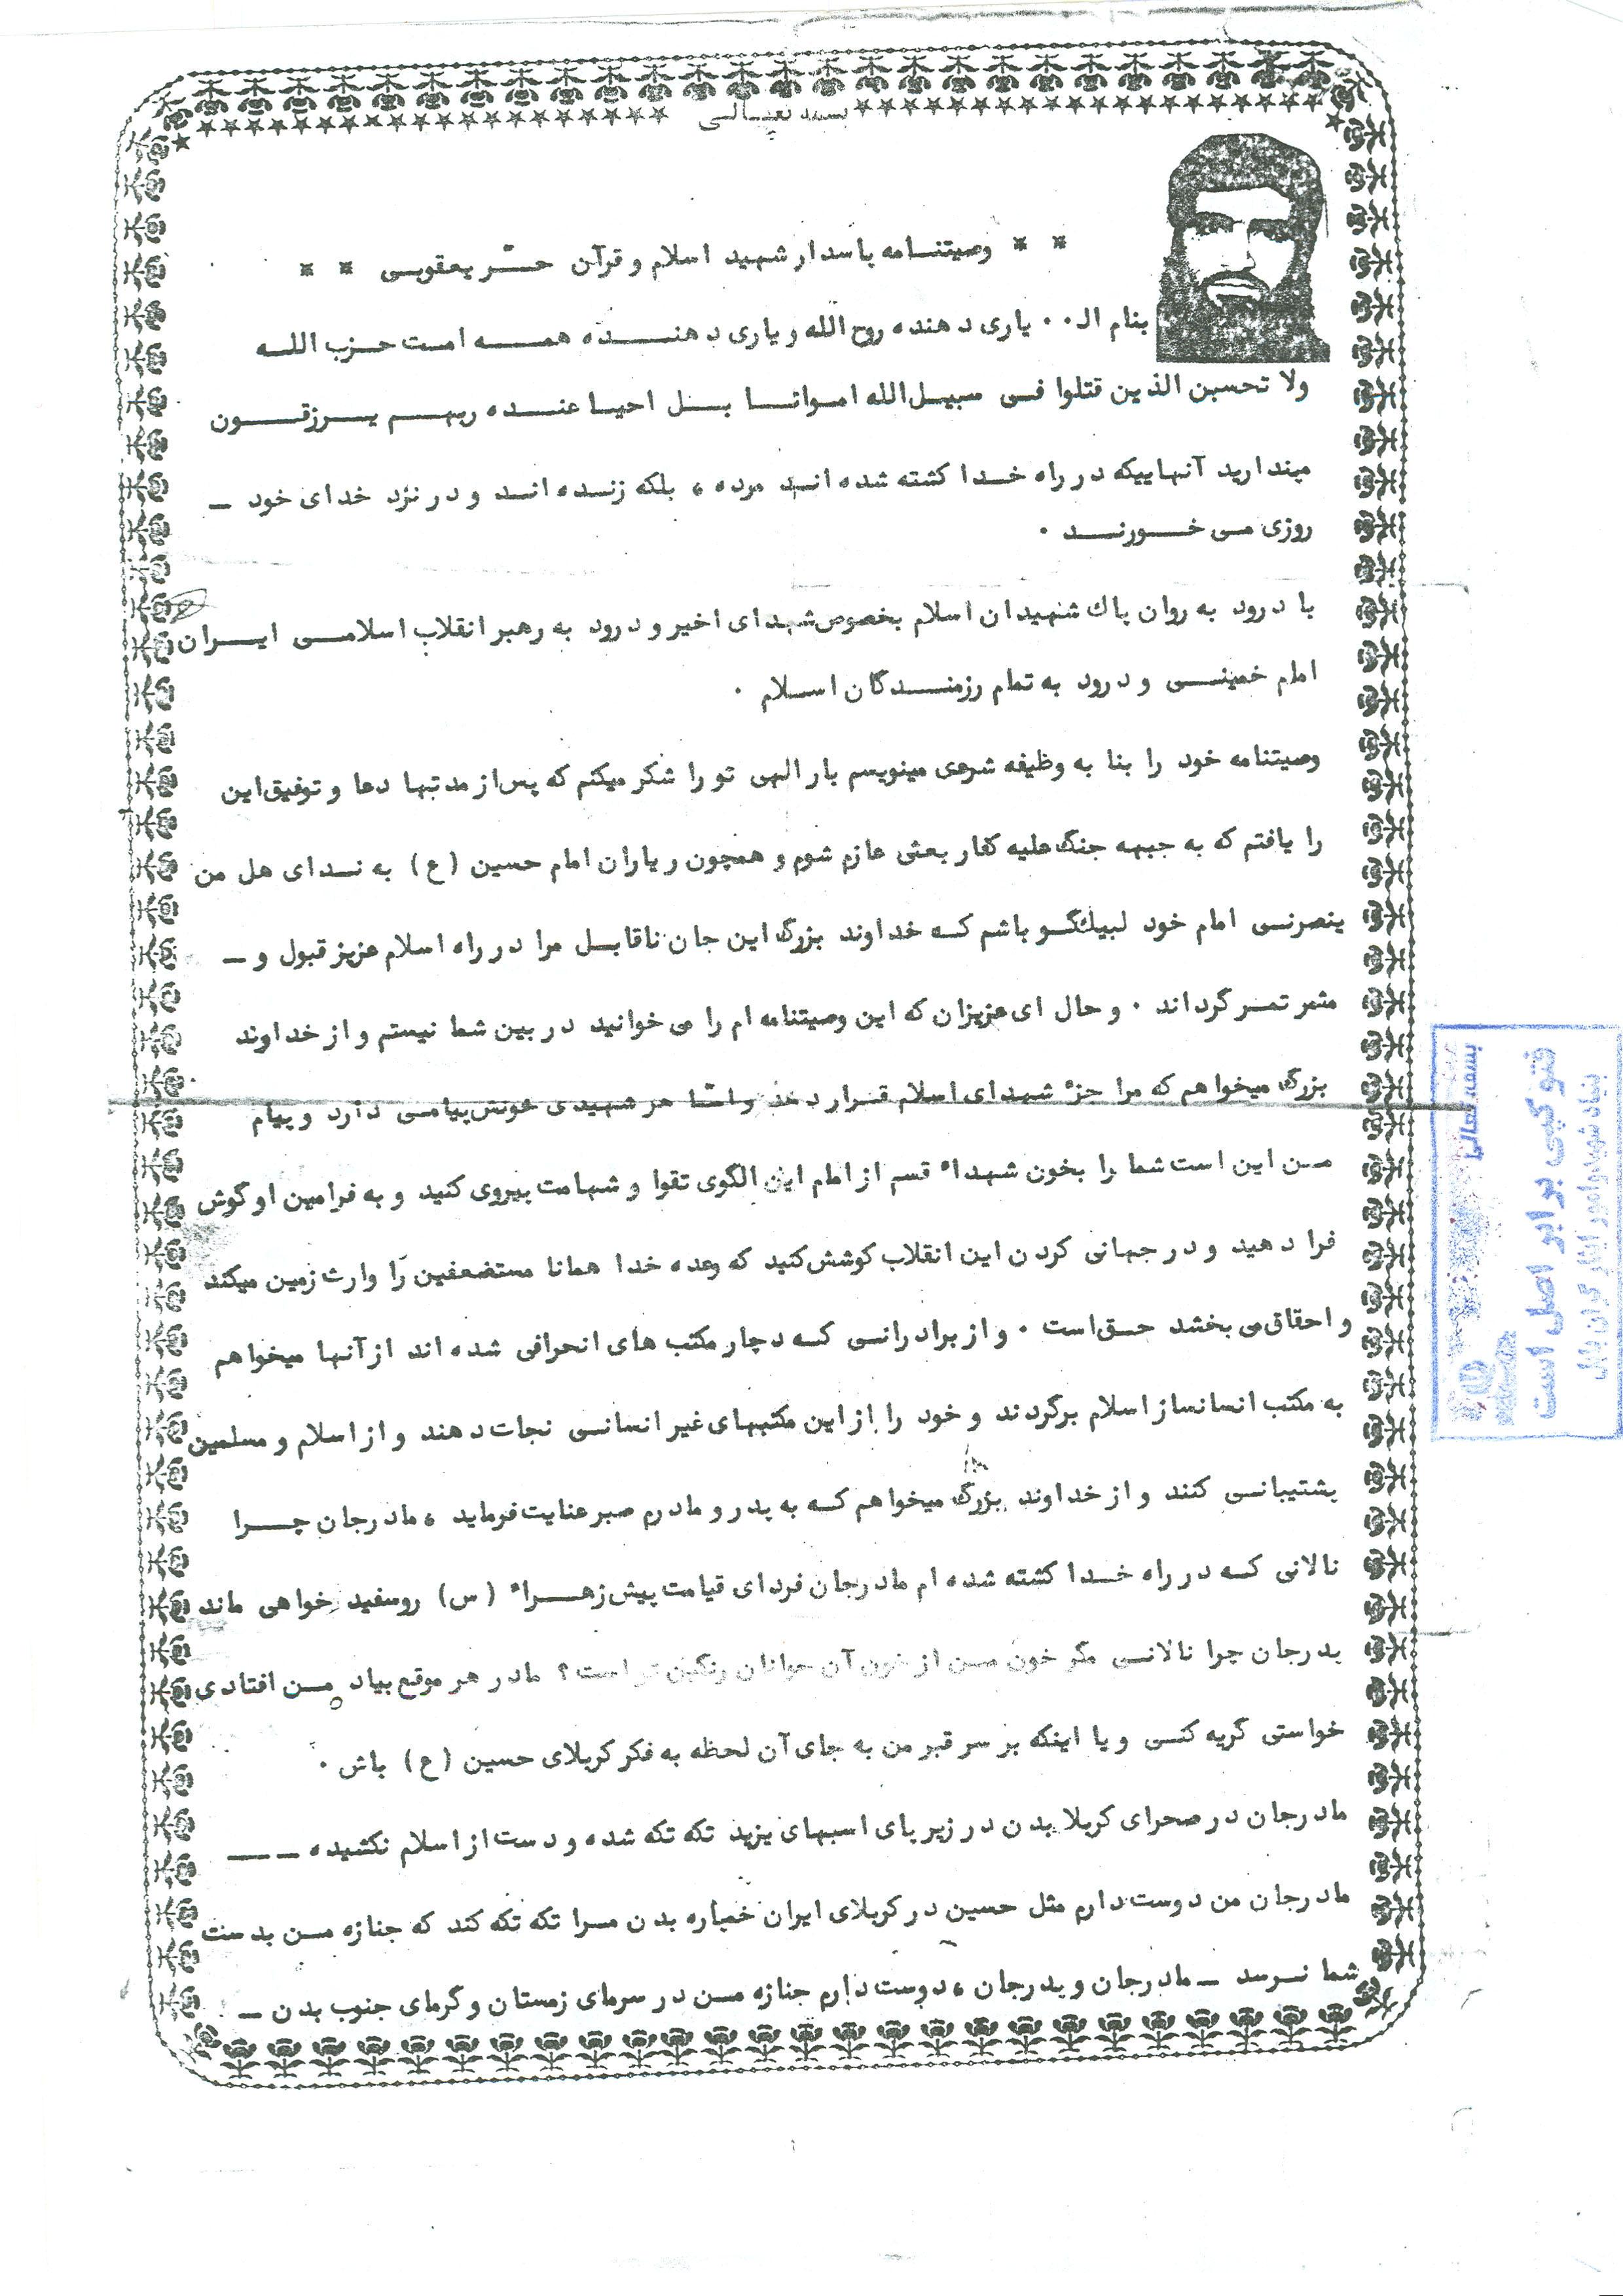 بسمه تعالی
* * وصیتنامه پاسدار شهید اسلام و قرآن حر یعقوبی * *
بنام ال.. یاری دهنده روح الله و یاری دهنده همه امت حزب الله
ولا تحسبن الذین قتلوا فی سبیل الله امواتا بل احیا عنده ربهم یرزقون
مپندارید آنهاییکه در راه خدا کشته شده اند مرده ، بلکه زنده اند و در نزد خدای خود –
روزی می خورند .
با درود به روان پاک شهیدان اسلام بخصوص شهدای اخیر و درود به رهبر انقلاب اسلامی ایران
امام خمینی و درود به تمام رزمندگان اسلام .
وصیتنامه خود را بنا به وظیفه شرعی مینویسم بار الهی تو را شکر میکنم که پس از مدتها دعا و توفیق این
را یافتم که به جبهه جنگ علیه کفار بعثی عازم شوم و همچون ر یاران امام حسین (ع) به ندای هل من
ینصرنی امام خود لبیک گو باشم که خداوند بزرگ این جان ناقابل مرا در راه اسلام عزیز قبول و –
مثمر ثمر گرداند . و حال ای عزیزان که این وصیتنامه ام را می خوانید در بین شما نیستم و از خداوند
بزرگ میخواهم که مرا جزء شهدای اسلام قرار دهد و امّا هر شهیدی خونش پیامی دارد و پیام
من این است شما را بخون شهداء قسم از امام این الگوی تقوا و شهامت پیروی کنید و به فرامین او گوش
فرا دهید و در جهانی کردن این انقلاب کوشش کنید که وعده خدا همانا مستضعفین را وارث زمین میکند
و احقاق می بخشد حق است . و از برادرانی که دچار مکتب های انحرافی شده اند از آنها میخواهم
به مکتب انسانساز اسلام برگردند و خود را از این مکتبهای غیر انسانی نجات دهند و از اسلام و مسلمین
پشتیبانی کنند و از خداوند بزرگ میخواهم که به پدر و مادرم صبر عنایت فرماید ، مادر جان چرا
نالانی که در راه خدا کشته شده ام مادر جان فردای قیامت پیش زهراء (س) روسفید خواهی ماند
پدر جان چرا نالانی مگر خون من از خون آن جوانان رنگین تر است ؟ مادر هر موقع بیاد من افتادی
خواستی گریه کنی و یا اینکه بر سر قبر من به جای آن لحظه به فکر کربلای حسین (ع) باش .
مادر جان در صحرای کربلا بدن در زیر پای اسبهای یزید تکه تکه شده و دست از اسلام نکشیده – —
مادر جان من دوست دارم مثل حسین در کربلای ایران خمپاره بدن مرا تکه تکه کند که جنازه من بدست
شما نرسد – مادر جان و پدر جان ، دوست دارم جنازه من در سرمای زمستان و گرمای جنوب بدن –
بسمه تعالی
فتو کپی برابر اصل است
بنیاد شهید و امور ایثارگران بابل